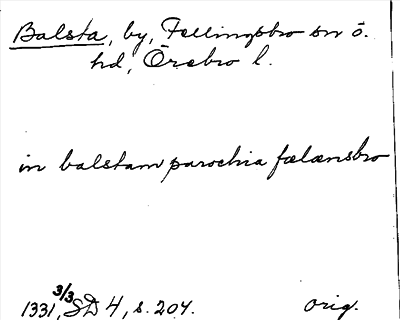 Balsta, by, Fellingsbro sn o.
hd, Örebro l.
in balstam parochia fælænsbro
1331 3/3, SD 4, s. 204. orig.